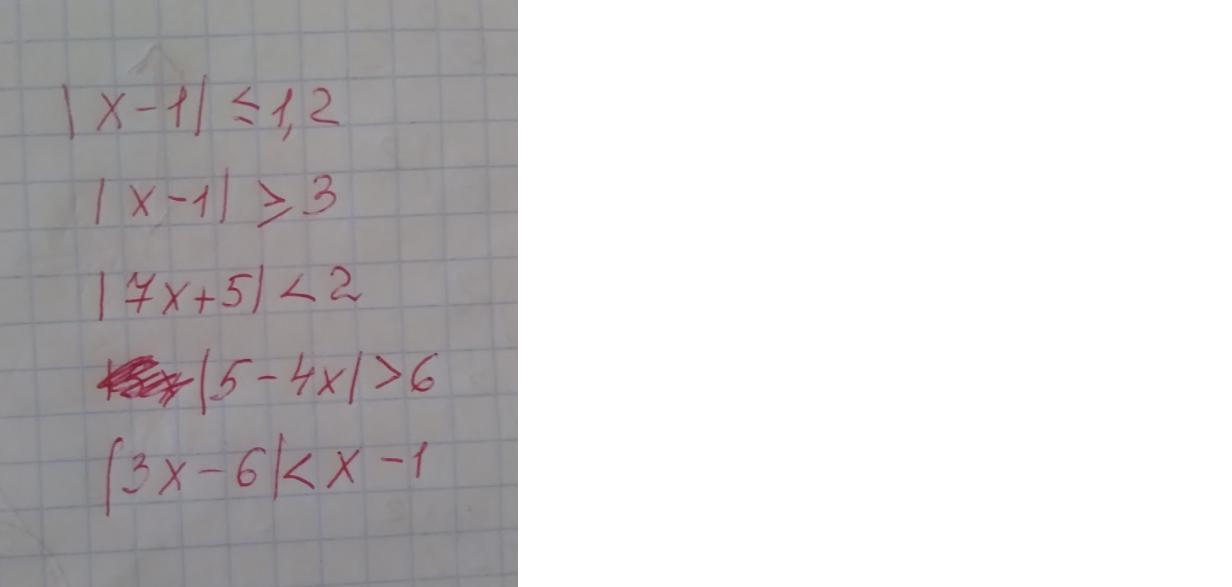 |x-1| ≤ 1,2
|x-1| ≥ 3
|7x+5| < 2
|5-4x| > 6
|3x-6| < x-1